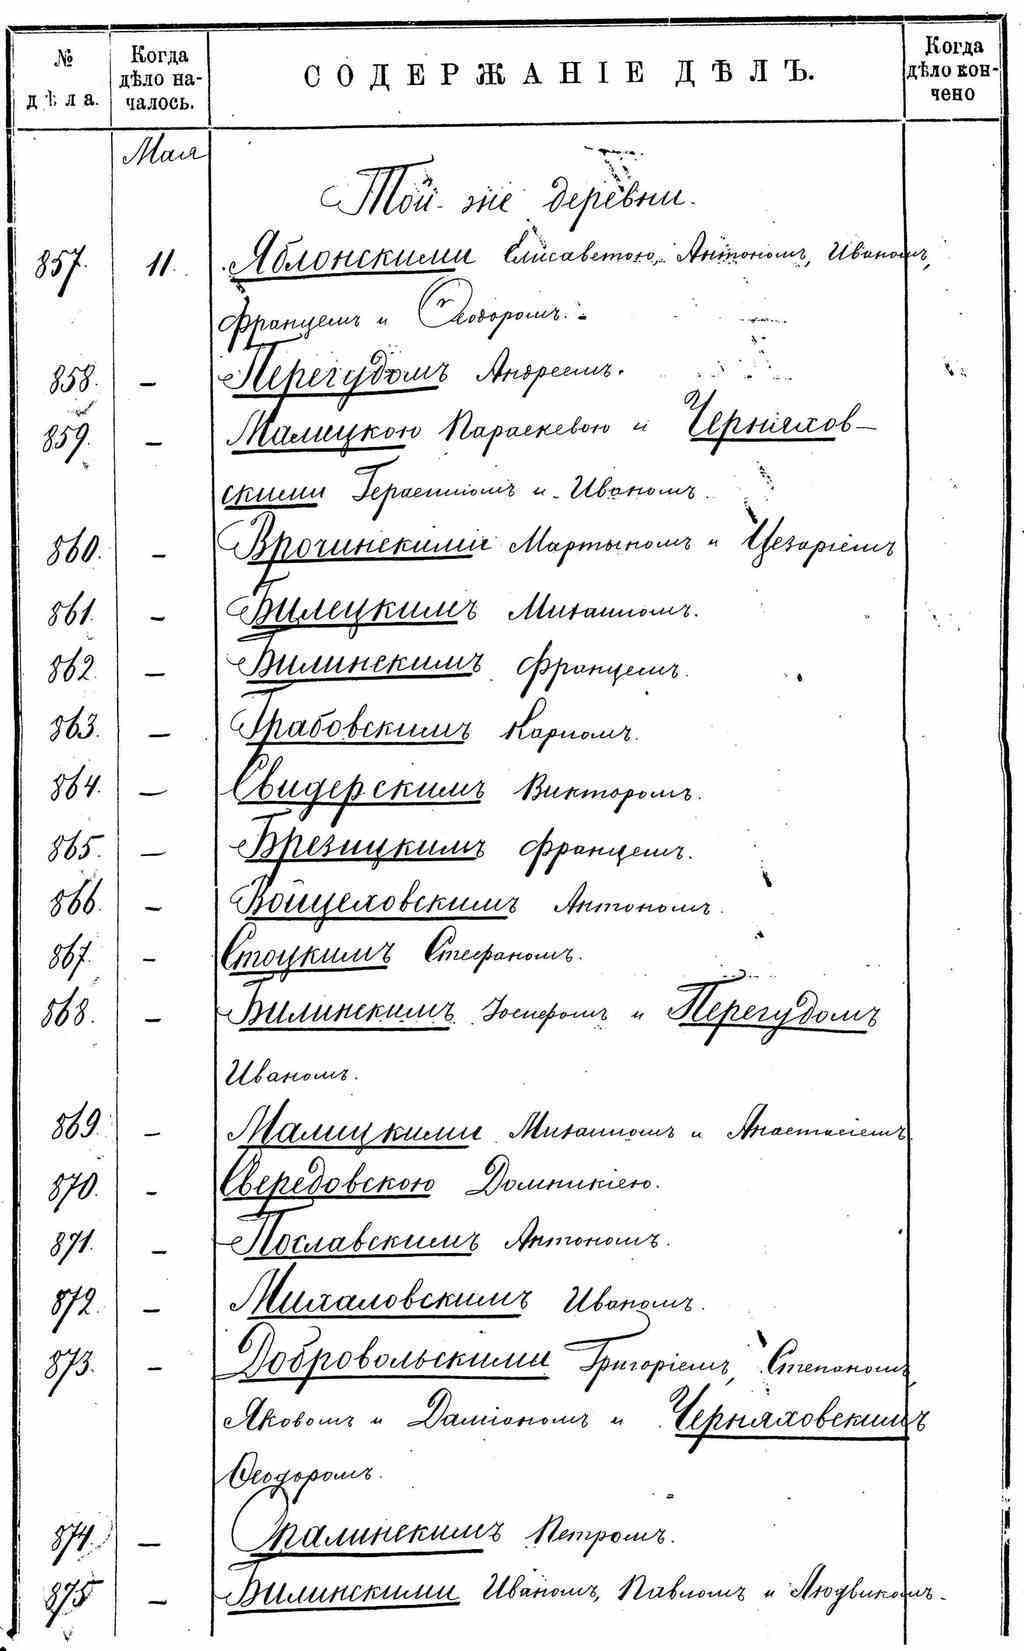 № дѣла.
Когда дѣло на-
чалось.
СОДЕРЖАНІЕ ДѢЛЪ.
Когда дѣло кон-
чено
Мая
Той-же деревни.
857. 11. Яблонскими Елисаветою, Антономъ, Иваномъ,
Францемъ и Ѳеодоромъ.
858. — Перегудомъ Андреемъ.
859. — Малицкою Параскевою и Черняхов-
скими Герасимомъ и Иваномъ.
860. — Врочинскими Мартыномъ и Цезаріемъ
861. — Билецкимъ Михаиломъ.
862. — Билинскимъ Францемъ.
863. — Грабовскимъ Карпомъ.
864. — Свидерскимъ Викторомъ.
865. — Брезицкимъ Францемъ.
866. — Войцеховскимъ Антономъ.
867. — Стоцкимъ Стефаномъ.
868. — Билинскимъ Іосифомъ и Перегудомъ
Иваномъ.
869. — Малицкими Михаиломъ и Анастасіемъ
870. — Свередовскою Домникіею.
871. — Пославскимъ Антономъ.
872. — Михаловскимъ Иваномъ.
873. — Добровольскими Григоріемъ, Степаномъ,
Яковомъ и Даміаномъ и Черняховскимъ
Ѳеодоромъ.
874. — Опалинскимъ Петромъ.
875 — Билинскими Иваномъ, Павломъ и Людвикомъ.